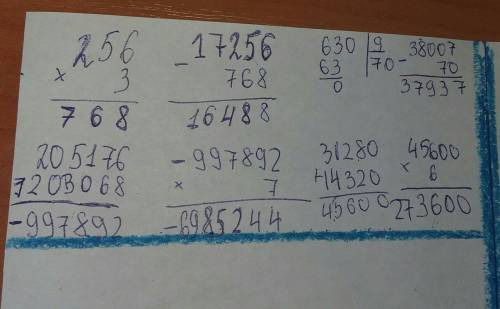 256
× 3
768
- 17256
768
16488
630 | 9
63 | 70
0
- 38007
70
37937
205176
1203068
-997892
-997892
× 7
-6985244
31280
+14320
45600
45600
× 6
273600